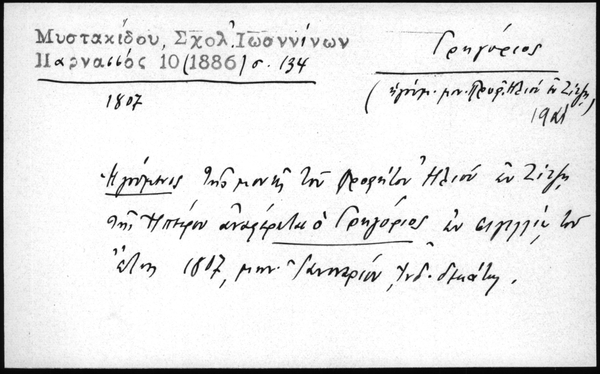 Μυστακίδου, Σχολ. Ἰωαννίνων
Παρνασσός 10 (1886) σ. 134
1807
Γρηγόριος
(ἡγούμ. μον. Προφ. Ηλιού ἐν Ζίτσῃ)
Ἡγούμενος τῆς μονῆς τοῦ Προφήτου Ἠλιού ἐν Ζίτσῃ
τῆς Ἠπείρου ἀναφέρεται ὁ Γρηγόριος ἐν σιγιλλίῳ τοῦ
ἔτους 1807, μην. Ἰαννουαρίου, Ἰνδ. δεκάτης.